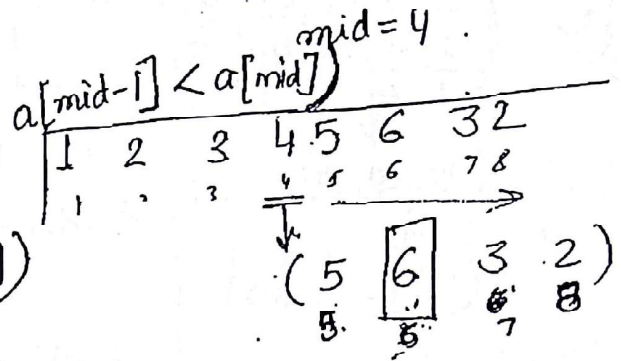 mid = 4 .
a[mid-1] < a[mid])
1 2 3 4 5 6 3 2
1 2 3 4 5 6 7 8
(5 6 3 2)
5 6 7 8